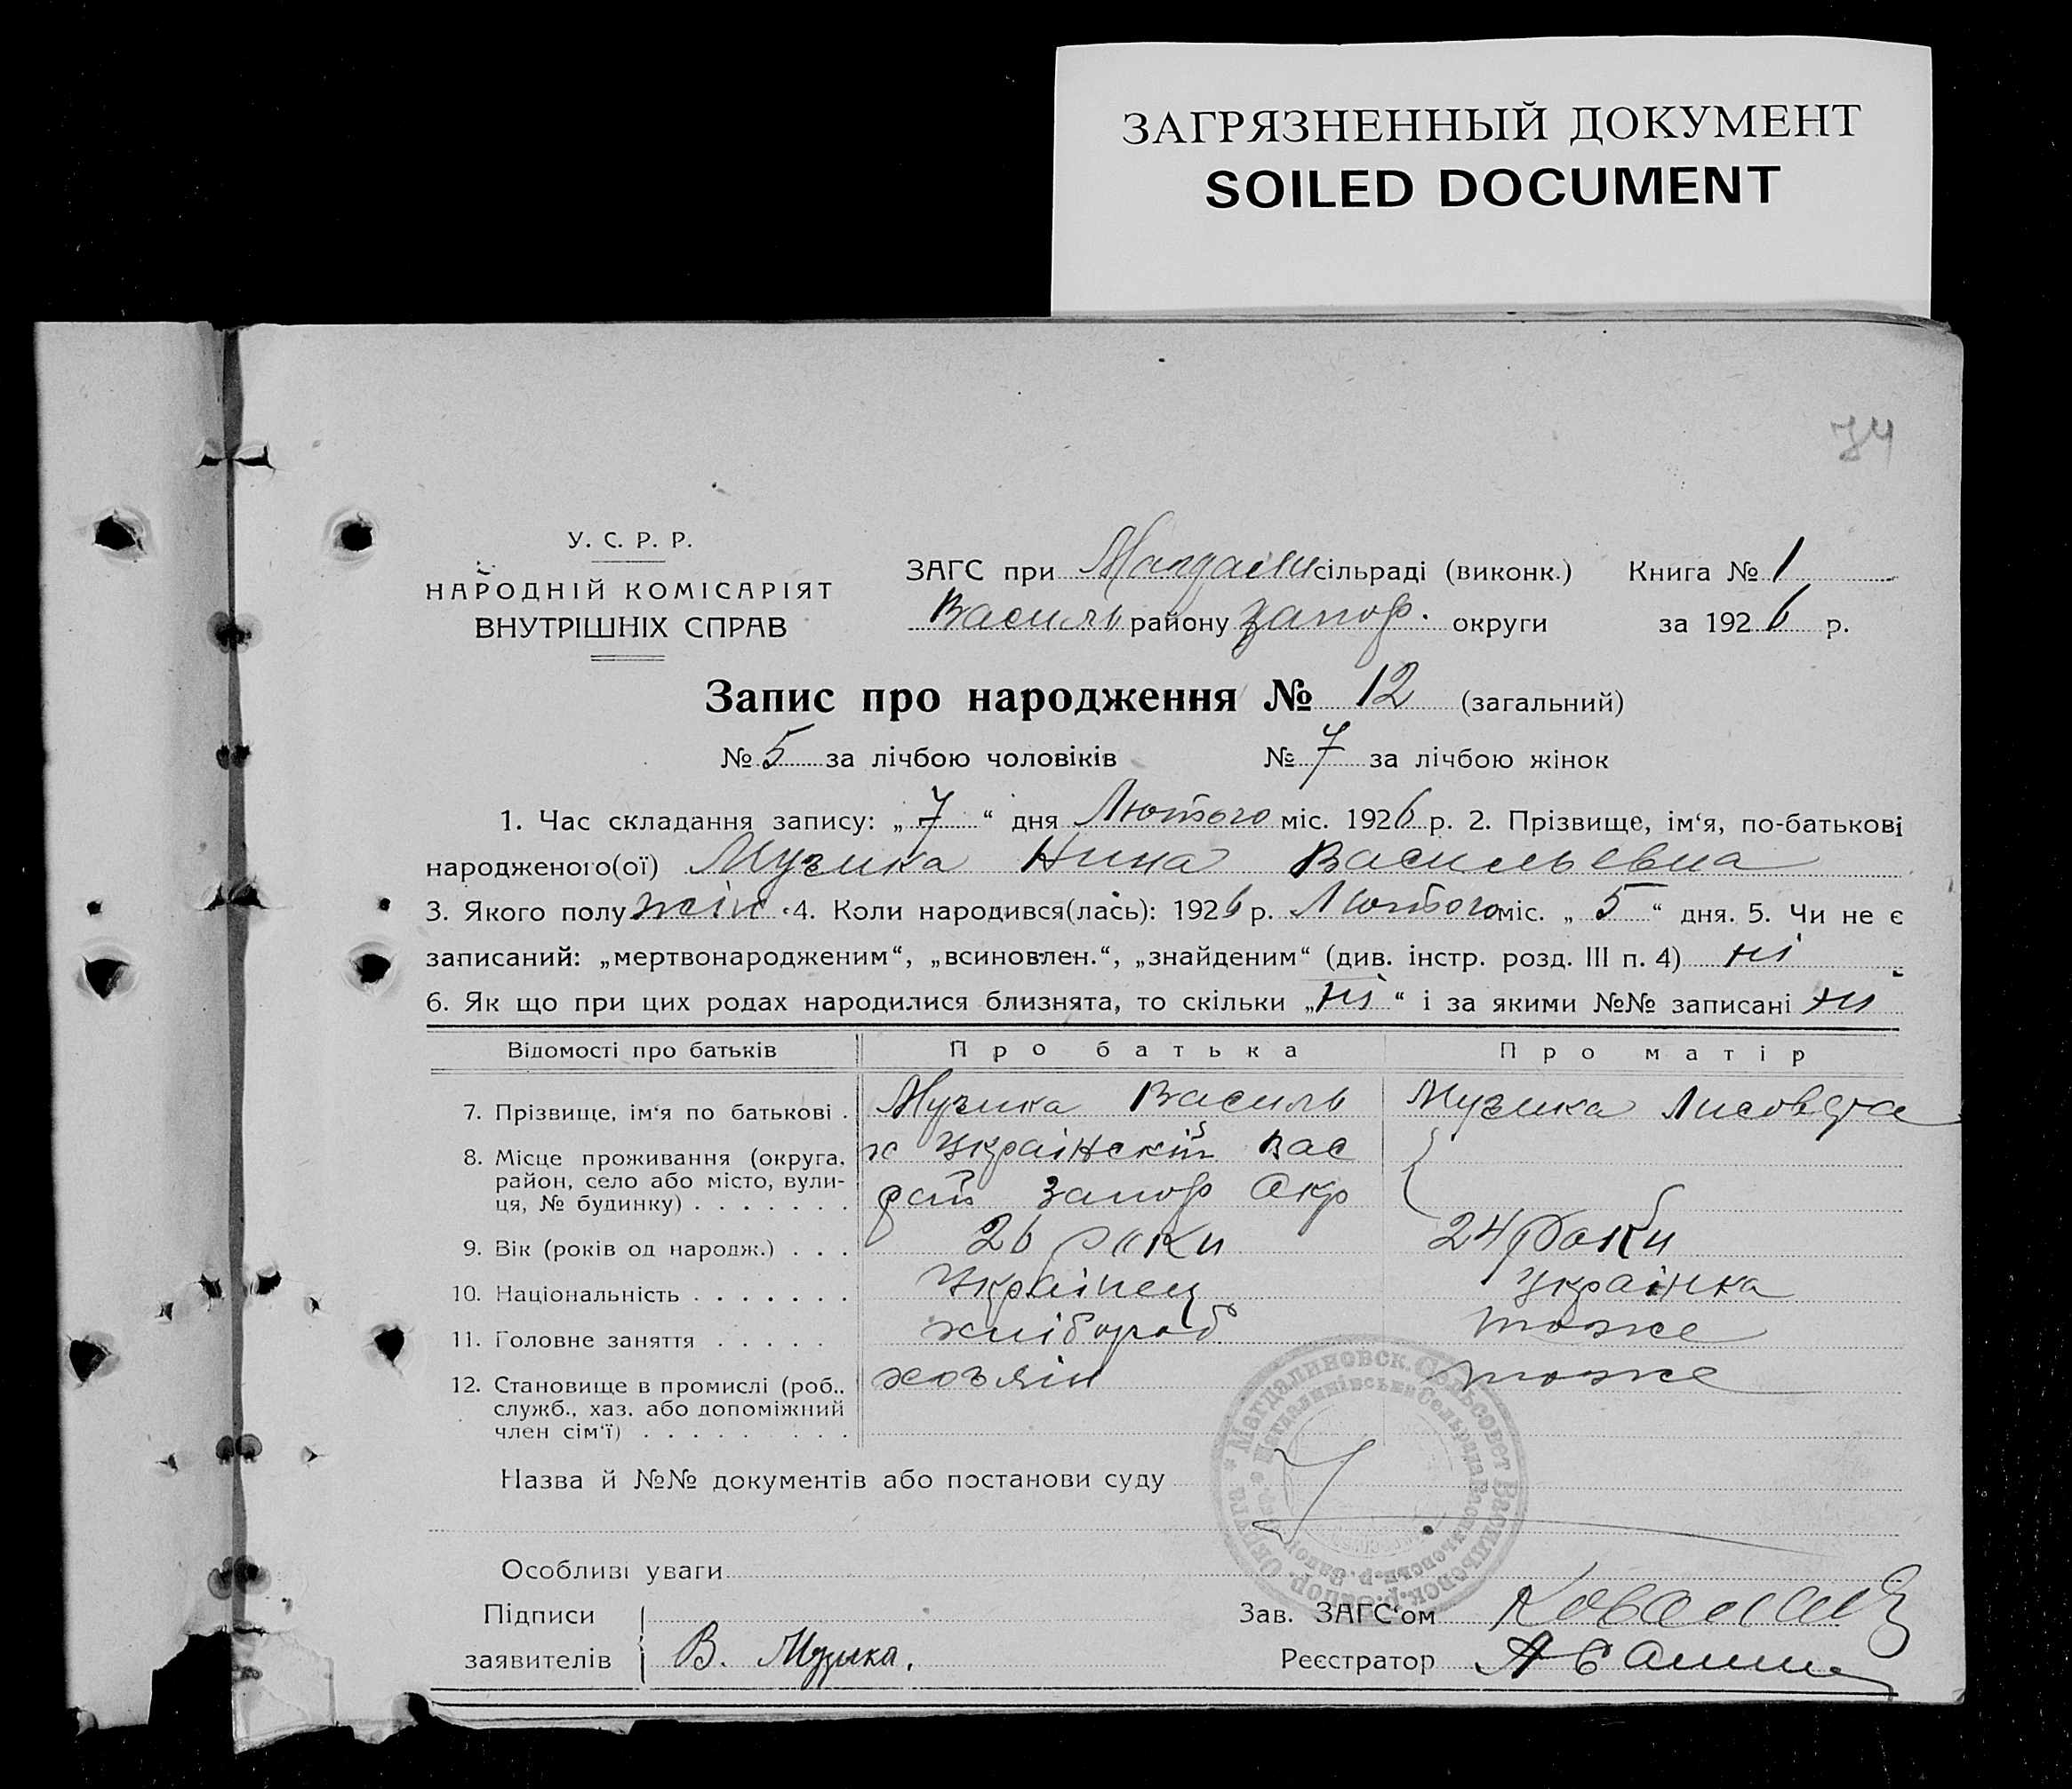 ЗАГРЯЗНЕННЫЙ ДОКУМЕНТ
SOILED DOCUMENT
74
У. С. Р. Р.
НАРОДНІЙ КОМІСАРІЯТ
ВНУТРІШНІХ СПРАВ
ЗАГС при Магдалин сільраді (виконк.) Книга № 1
Василь району Запор. округи за 1926 р.
Запис про народження № 12 (загальний)
№ 5 за лічбою чоловіків № 7 за лічбою жінок
1. Час складання запису: „7“ дня Лютого міс. 1926 р. 2. Прізвище, ім‘я, по-батькові
народженого(ої) Музика Нина Васильевна
3. Якого полу жін. 4. Коли народився(лась): 1926 р. Лютого міс. „5“ дня. 5. Чи не є
записаний: „мертвонародженим“, „всиновлен.“, „знайденим“ (див. інстр. розд. III п. 4) ні
6. Як що при цих родах народилися близнята, то скільки „ні“ і за якими №№ записані ни
Відомості про батьків Про батька Про матір
7. Прізвище, ім‘я по батькові . Музика Василь Музика
8. Місце проживання (округа, х Українскій Вас
район, село або місто, вули- рай Запор Окр
ця, № будинку) . . . . . . .
9. Вік (років од народж.) . . . 26 роки 24 роки
10. Національність . . . . . . . Українец Українка
11. Головне заняття . . . . . хлібороб тоже
12. Становище в промислі (роб., хозяін тоже
служб., хаз. або допоміжний
член сім‘ї) . . . . . . . . .
Назва й №№ документів або постанови суду
Магдалиновск. Сельсовет Васильевск. р. Запор. Округа
Особливі уваги
Підписи Зав. ЗАГС‘ом
заявителів В. Музика. Реєстратор